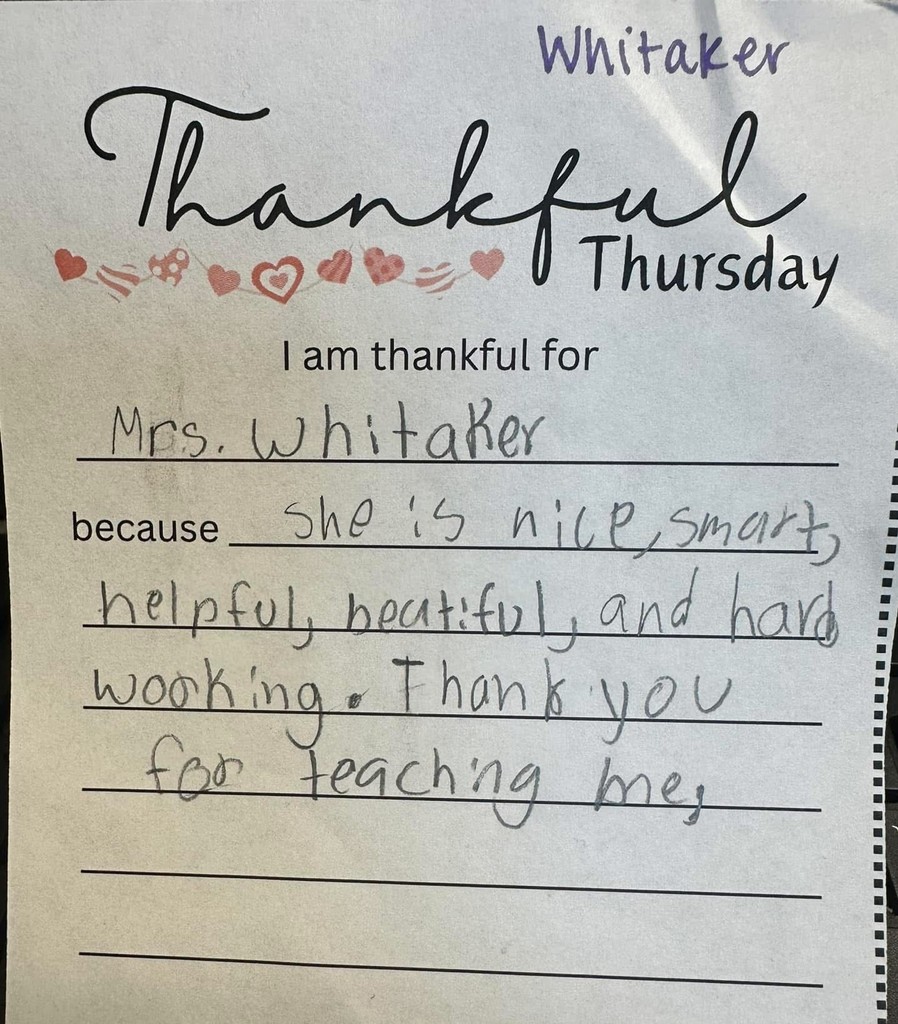 Whitaker
Thankful
Thursday
I am thankful for
Mrs. Whitaker
because she is nice, smart,
helpful, beatiful, and hard
working. Thank you
for teaching me,